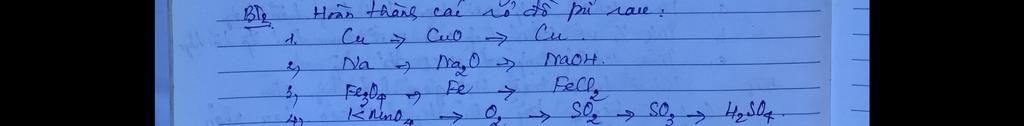 BT2 Hoàn thàng các sơ đồ pứ sau:
1. Cu → CuO → Cu.
2, Na → Na₂O → NaOH.
3, Fe₃O₄ → Fe → FeCl₂
4, KMnO₄ → O₂ → SO₂ → SO₃ → H₂SO₄.